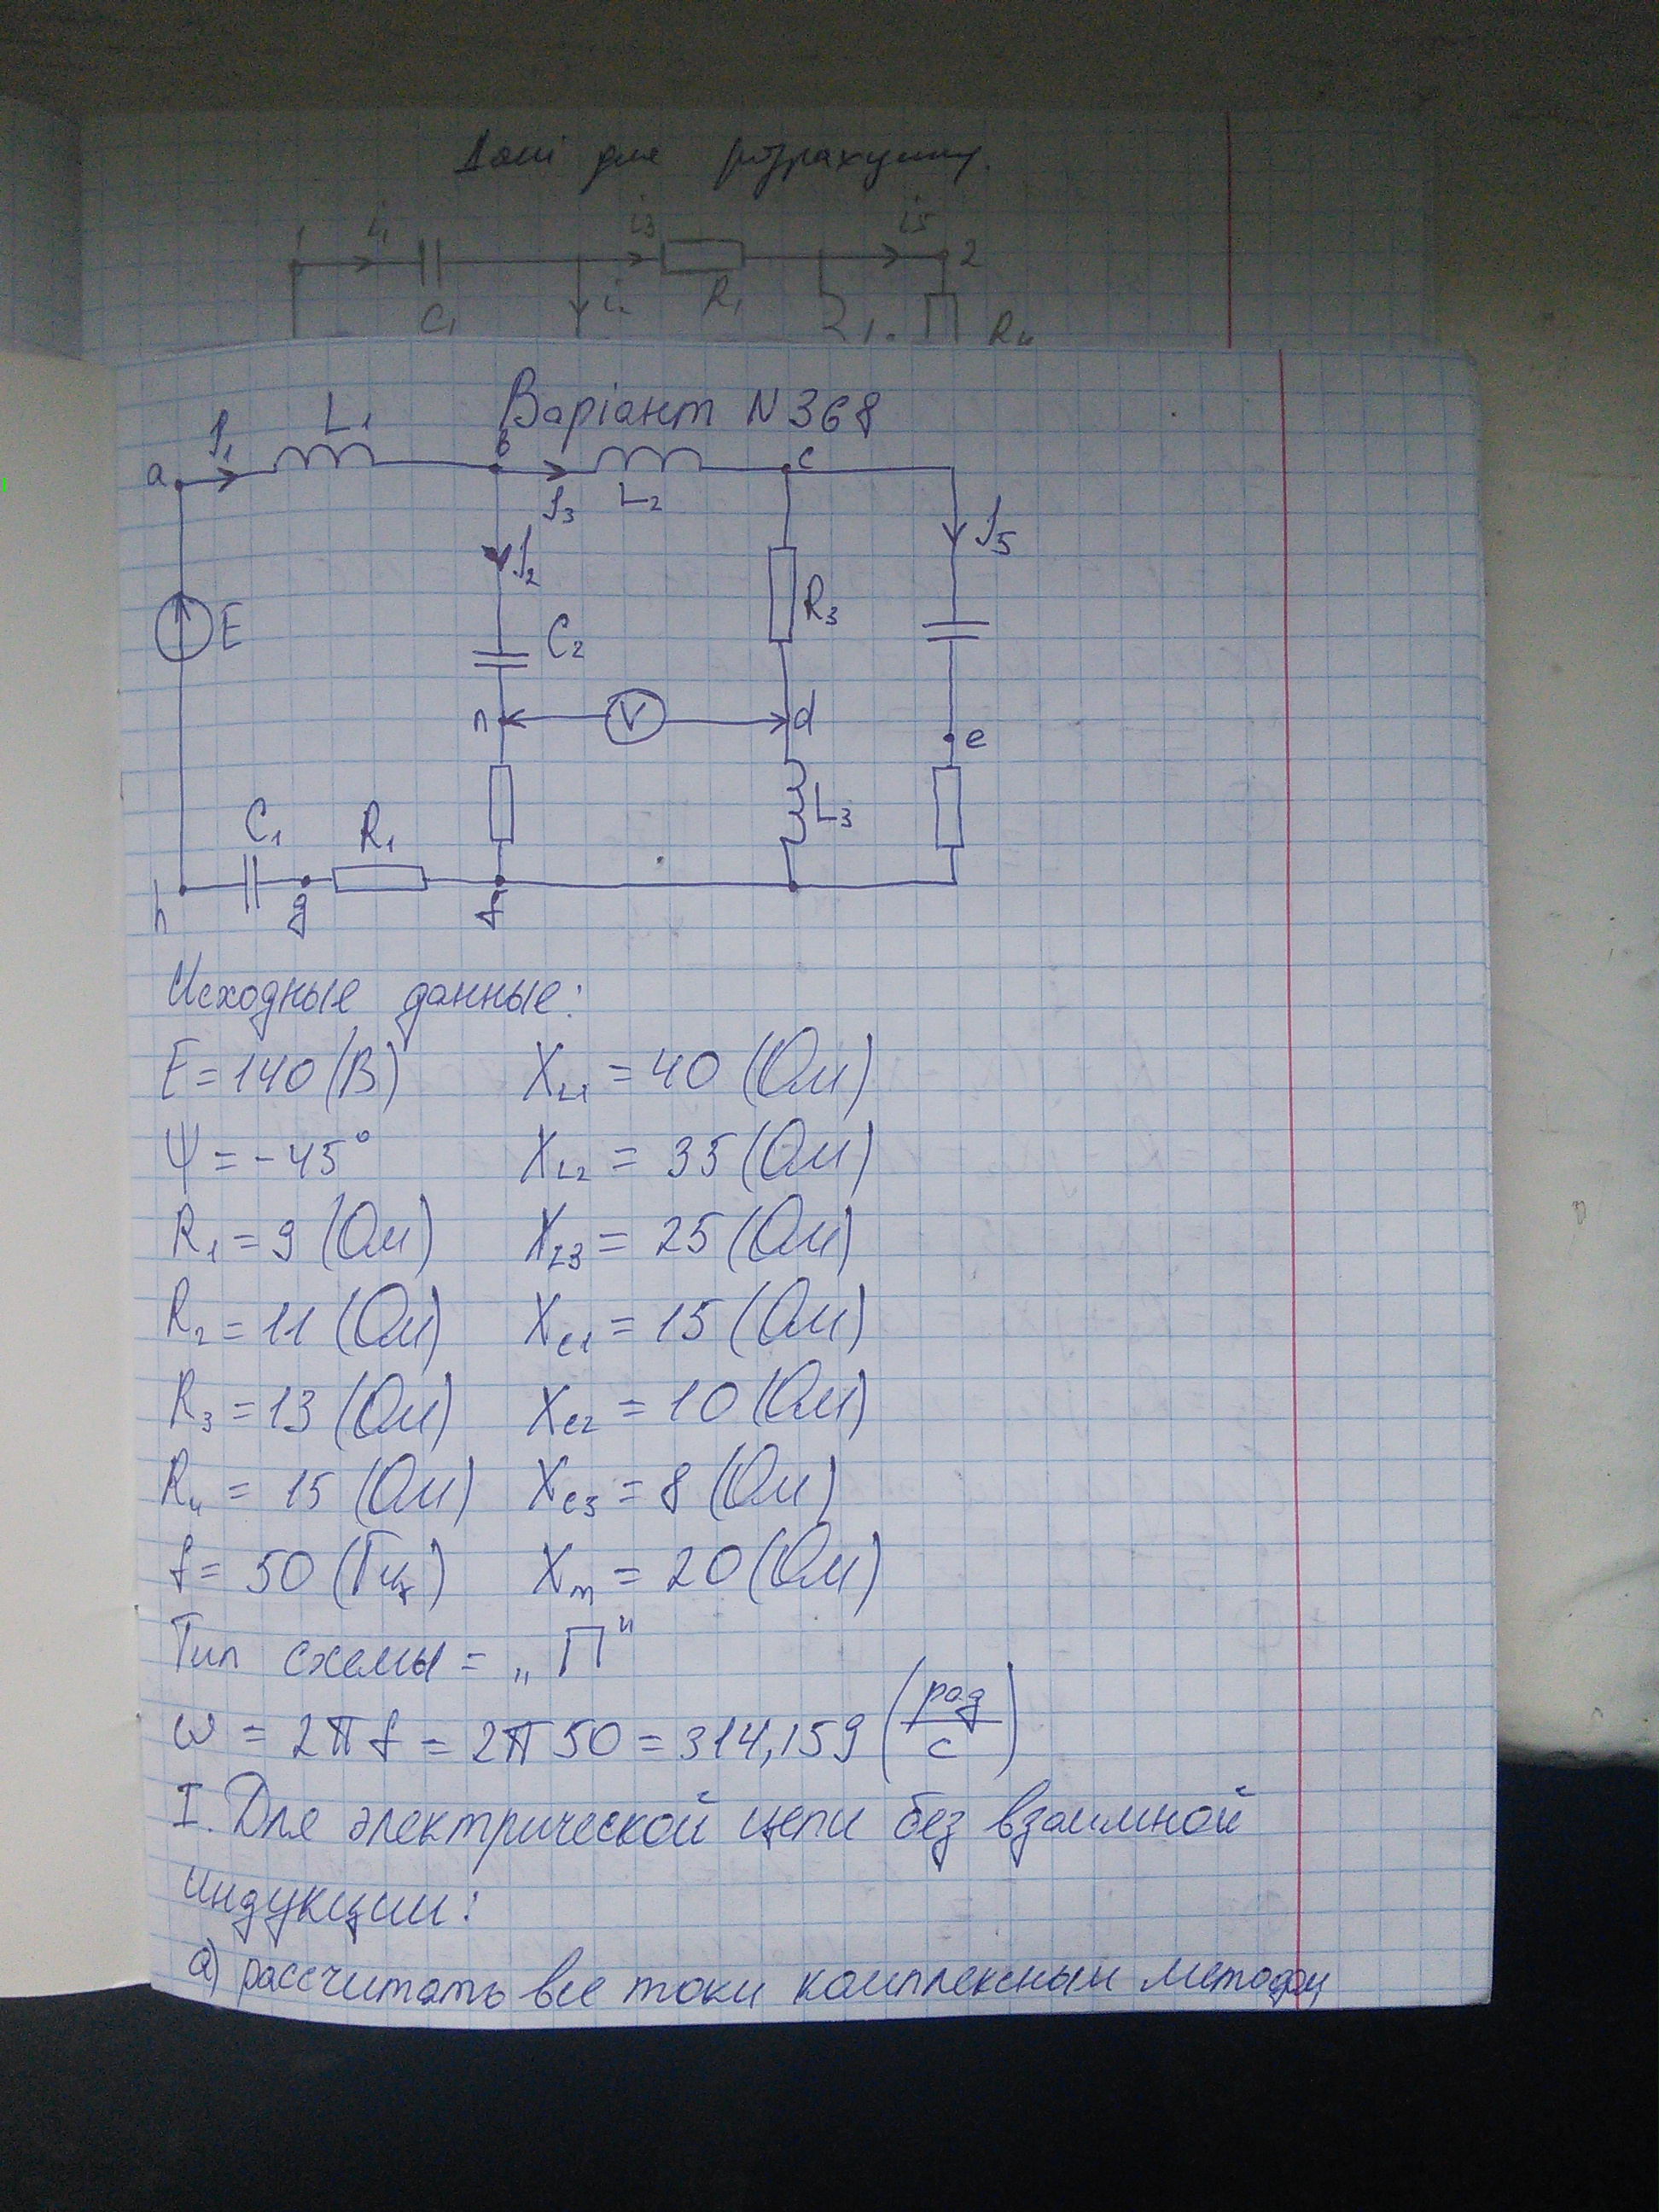 Дані для розрахунку.
i₁ i₃ i₅
2
C₁ i₂ R₁ R₄
Варіант N368
a I₁ L₁ b I₃ L₂ c
I₂ I₅
E C₂ R₃
n V d e
C₁ R₁ L₃
h g f
Исходные данные:
E = 140 (В) X_L1 = 40 (Ом)
Ψ = -45° X_L2 = 35 (Ом)
R₁ = 9 (Ом) X_L3 = 25 (Ом)
R₂ = 11 (Ом) X_C1 = 15 (Ом)
R₃ = 13 (Ом) X_C2 = 10 (Ом)
R₄ = 15 (Ом) X_C3 = 8 (Ом)
f = 50 (Гц) X_m = 20 (Ом)
Тип схемы = „П"
ω = 2πf = 2π50 = 314,159 (рад/с)
I. Для электрической цепи без взаимной
индукции:
а) рассчитать все токи комплексным методом